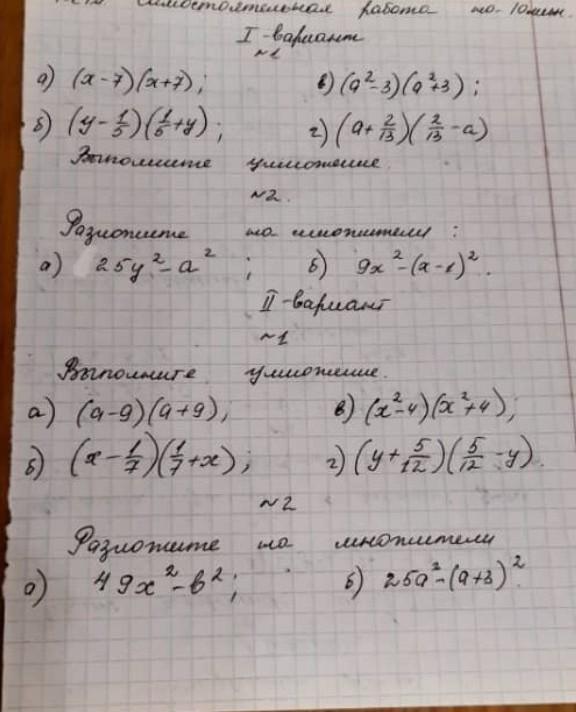 Самостоятельная работа на 10 мин.
I-вариант
№1
а) (x-7)(x+7); в) (a²-3)(a²+3);
б) (y-1/5)(1/5+y); г) (a+2/13)(2/13-a)
Выполните умножение.
№2.
Разложите на множители:
а) 25y²-a²; б) 9x²-(x-1)².
II-вариант
№1
Выполните умножение.
а) (a-9)(a+9); в) (x²-4)(x²+4);
б) (x-1/7)(1/7+x); г) (y+5/12)(5/12-y).
№2
Разложите на множители
а) 49x²-b²; б) 25a²-(a+3)².